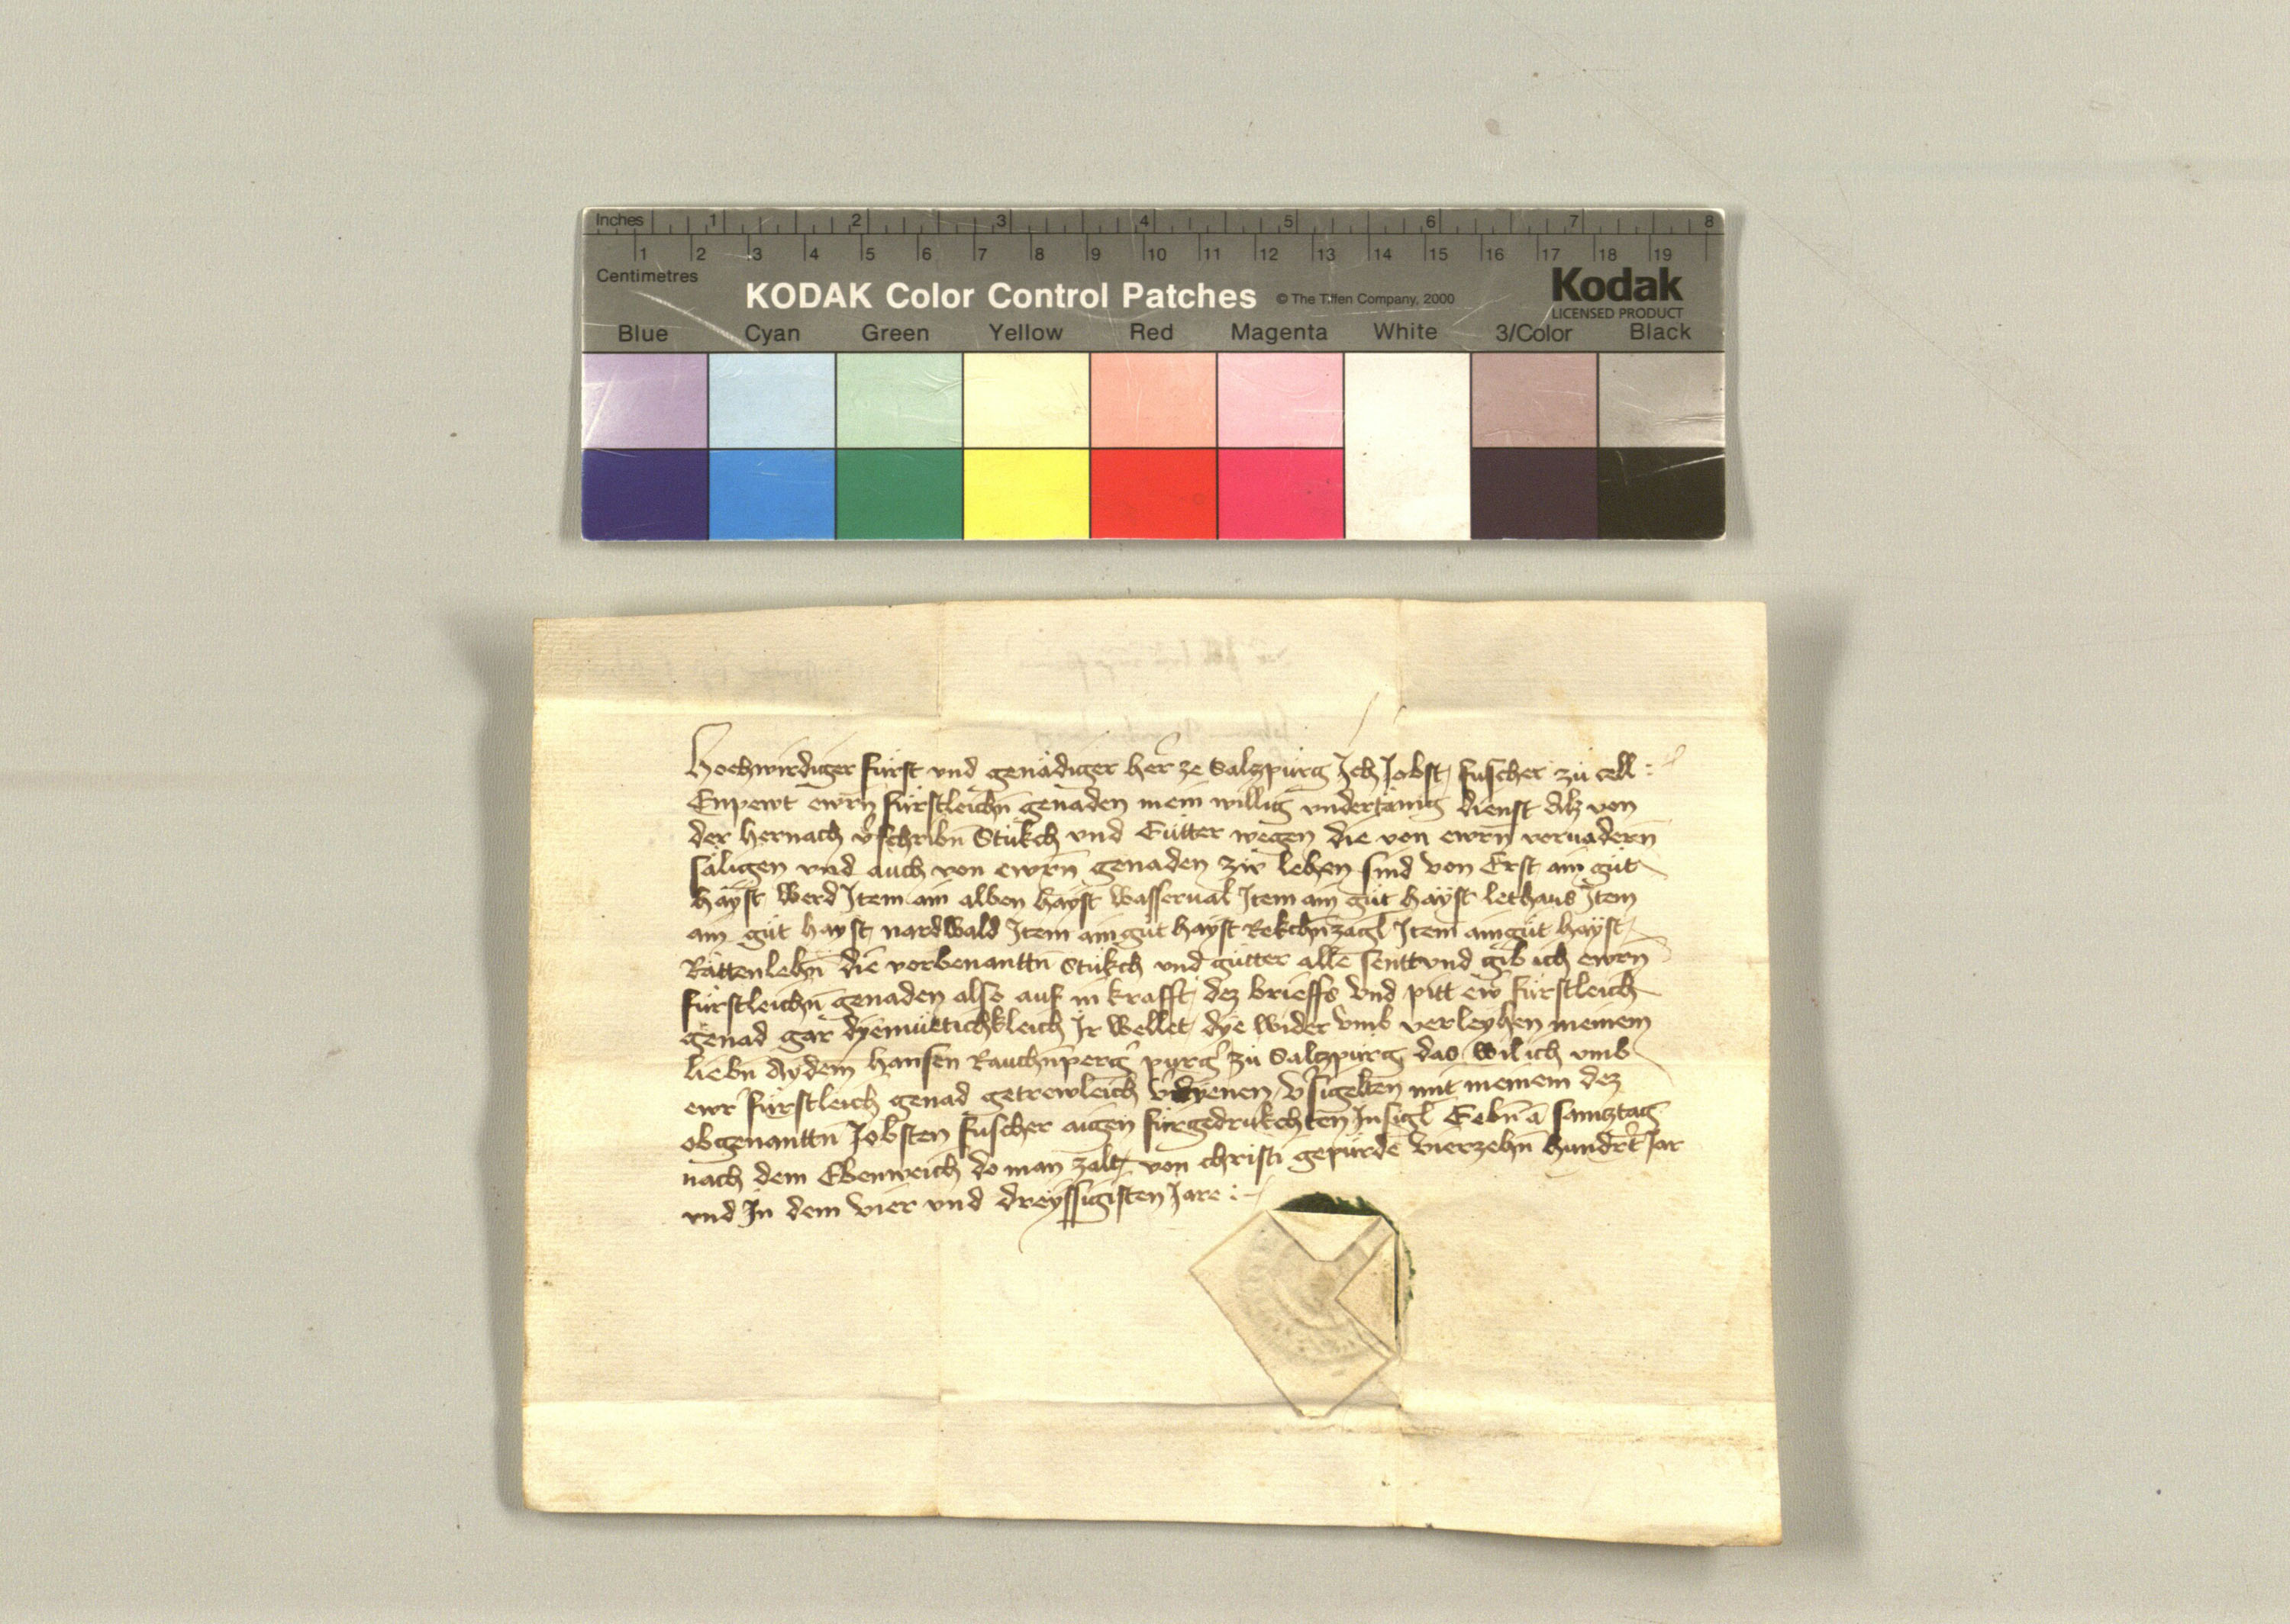 Inches 1 2 3 4 5 6 7 8
1 2 3 4 5 6 7 8 9 10 11 12 13 14 15 16 17 18 19
Centimetres
KODAK Color Control Patches © The Tiffen Company, 2000 Kodak
LICENSED PRODUCT
Blue Cyan Green Yellow Red Magenta White 3/Color Black
Hochwirdiger fürst vnd genädiger her ze Salzpurg Ich Jobst fuscher zu cell :
Enpewt ewrn̄ fürstleichn̄ genaden mein willig vndertänig dienst Alz von
der hernach v̓schribn̄ Stükch vnd Gütter wegen die von ewrn̄ voruadern̄
säligen vnd auch von ewrn̄ genaden zw lehen sind von Erst ain güt
hayst werd Item ain alben hayst wasserual Item ain güt hayst lethaus Item
ain güt hayst nardwald Item ain güt hayst Rekchn̄zagl Item ain güt hayst
Rättenlehn̄ die vorbenanttn̄ Stükch vnd gütter alle sentt vnd gib ich ewrn̄
fürstleichn̄ genaden also auf in krafft dez brieffs vnd pitt ew̓ fürstleich
genad gar dyemüetichkleich Ir wellet dye wider vmb verleyhen meinem
liebn̄ Aydem hansen Rauchn̄perg̓ purg̓ zu Salzpurg das wil ich vmb
ewr̓ fürstleich genad getrewleich v̓dyenen V̓sigelten mit meinem dez
obgenanttn̄ Jobsten fuscher aigen fürgedrukchten Insigl Gebn̄ ā samztag
nach dem Ebenweich do man zalt von christi gepürde vierzehn̄ hundr̄t Jar
vnd In dem vier vnd dreyssigisten Jare :-